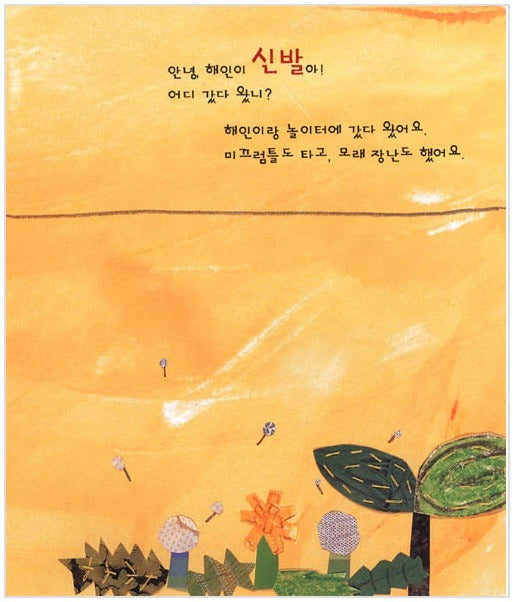 안녕, 해인이 신발아!
어디 갔다 왔니?
해인이랑 놀이터에 갔다 왔어요.
미끄럼틀도 타고, 모래 장난도 했어요.